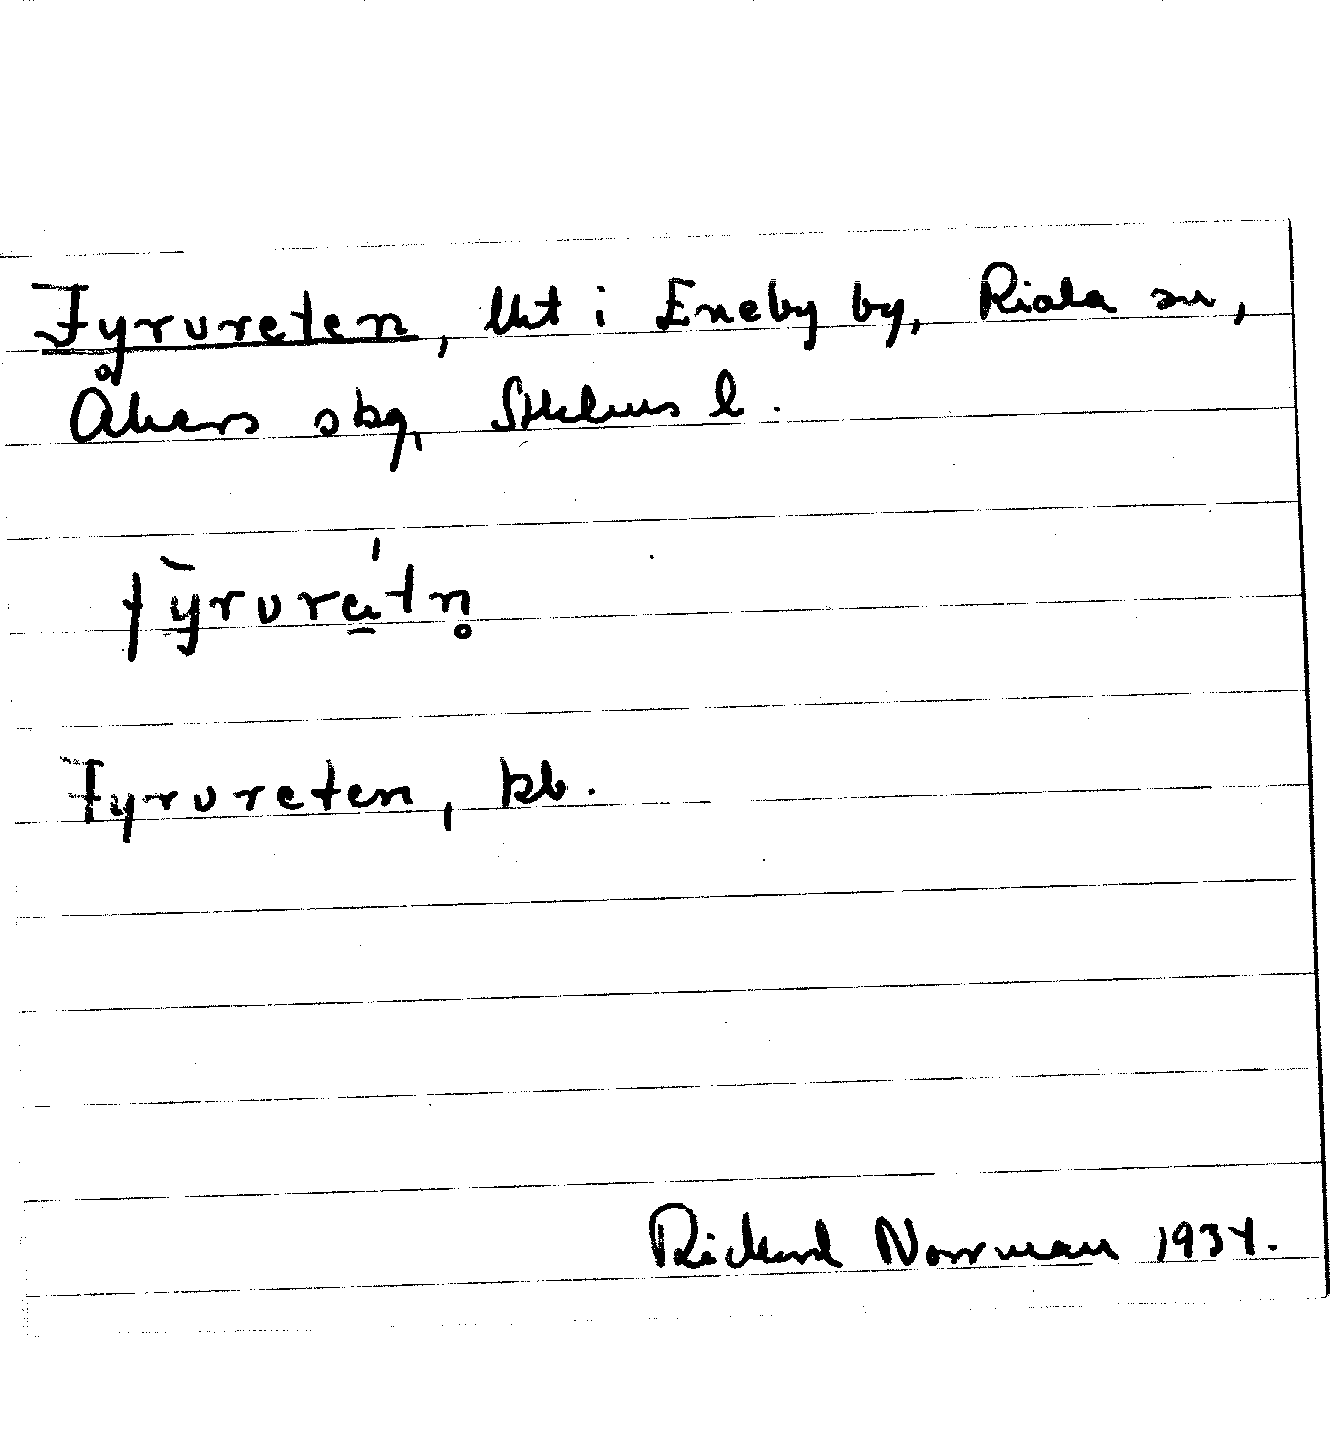 Fyrureten, lht i Eneby by, Riala sn,
Åkers skg, Sthlms l.
Fyrureten, kb.
Rickard Norrman 1934.